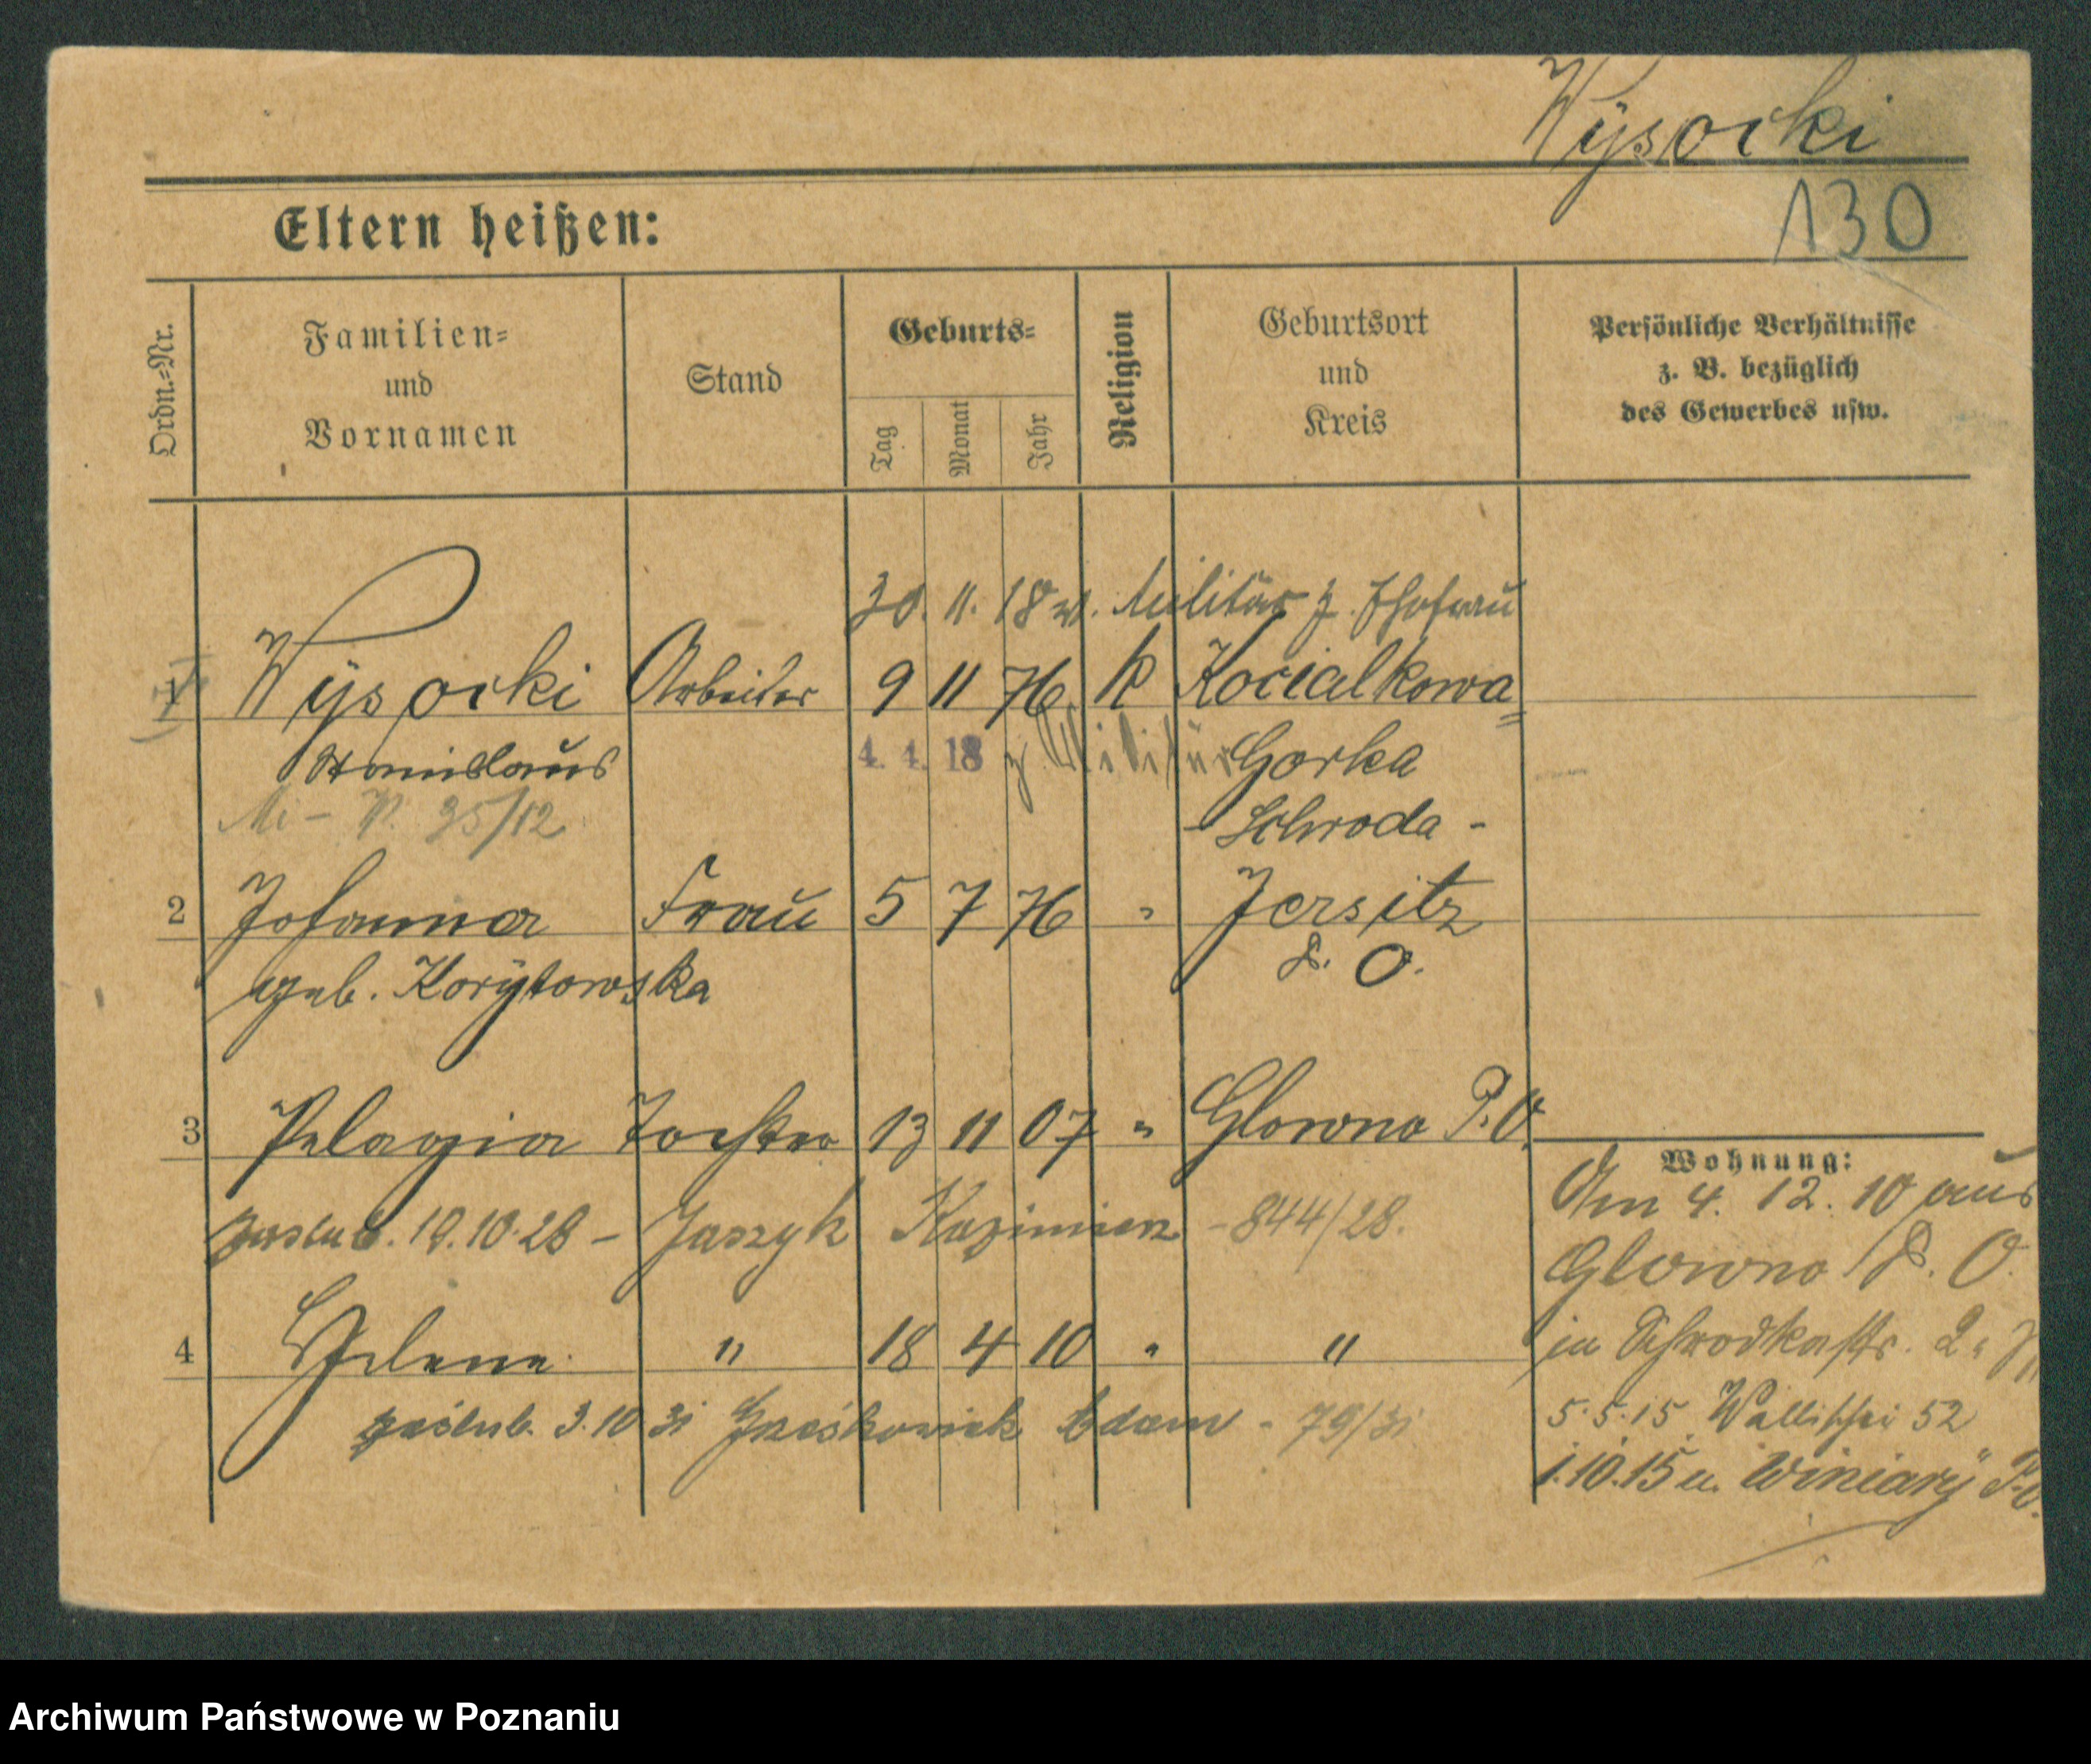 Wysocki
130
Eltern heißen:
Ordn.-Nr.
Familien-
und
Vornamen
Stand
Geburts-
Tag
Monat
Jahr
Religion
Geburtsort
und
Kreis
Persönliche Verhältnisse
z. B. bezüglich
des Gewerbes usw.
30. 11. 18 v. Militär z. Ehefrau
1 Wysocki Arbeiter 9 11 76 k Kocialkowa=
Stanislaus 4. 4. 18 z Militär Gorka
35/12 - Schroda -
2 Johanna Frau 5 7 76 " Jersitz
geb. Korytowska P. O.
3 Pelagia Tochter 13 11 07 " Glowno P. O.
zaslub. 10.28 - Jaszyk Kazimierz - 844/28.
4 Helene " 18 4 10 " "
zaślub. 3.10 31 Jześkowiak Adam - 79/31
Wohnung:
Am 4. 12. 10 aus
Glowno P. O.
in Schrodkastr. 2
5.5.15 Wallischei 52
1.10.15 n. Winiary P. O.
Archiwum Państwowe w Poznaniu